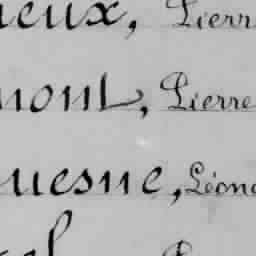 ieux, Pierr
mont, Pierre
uesne, Léon
el